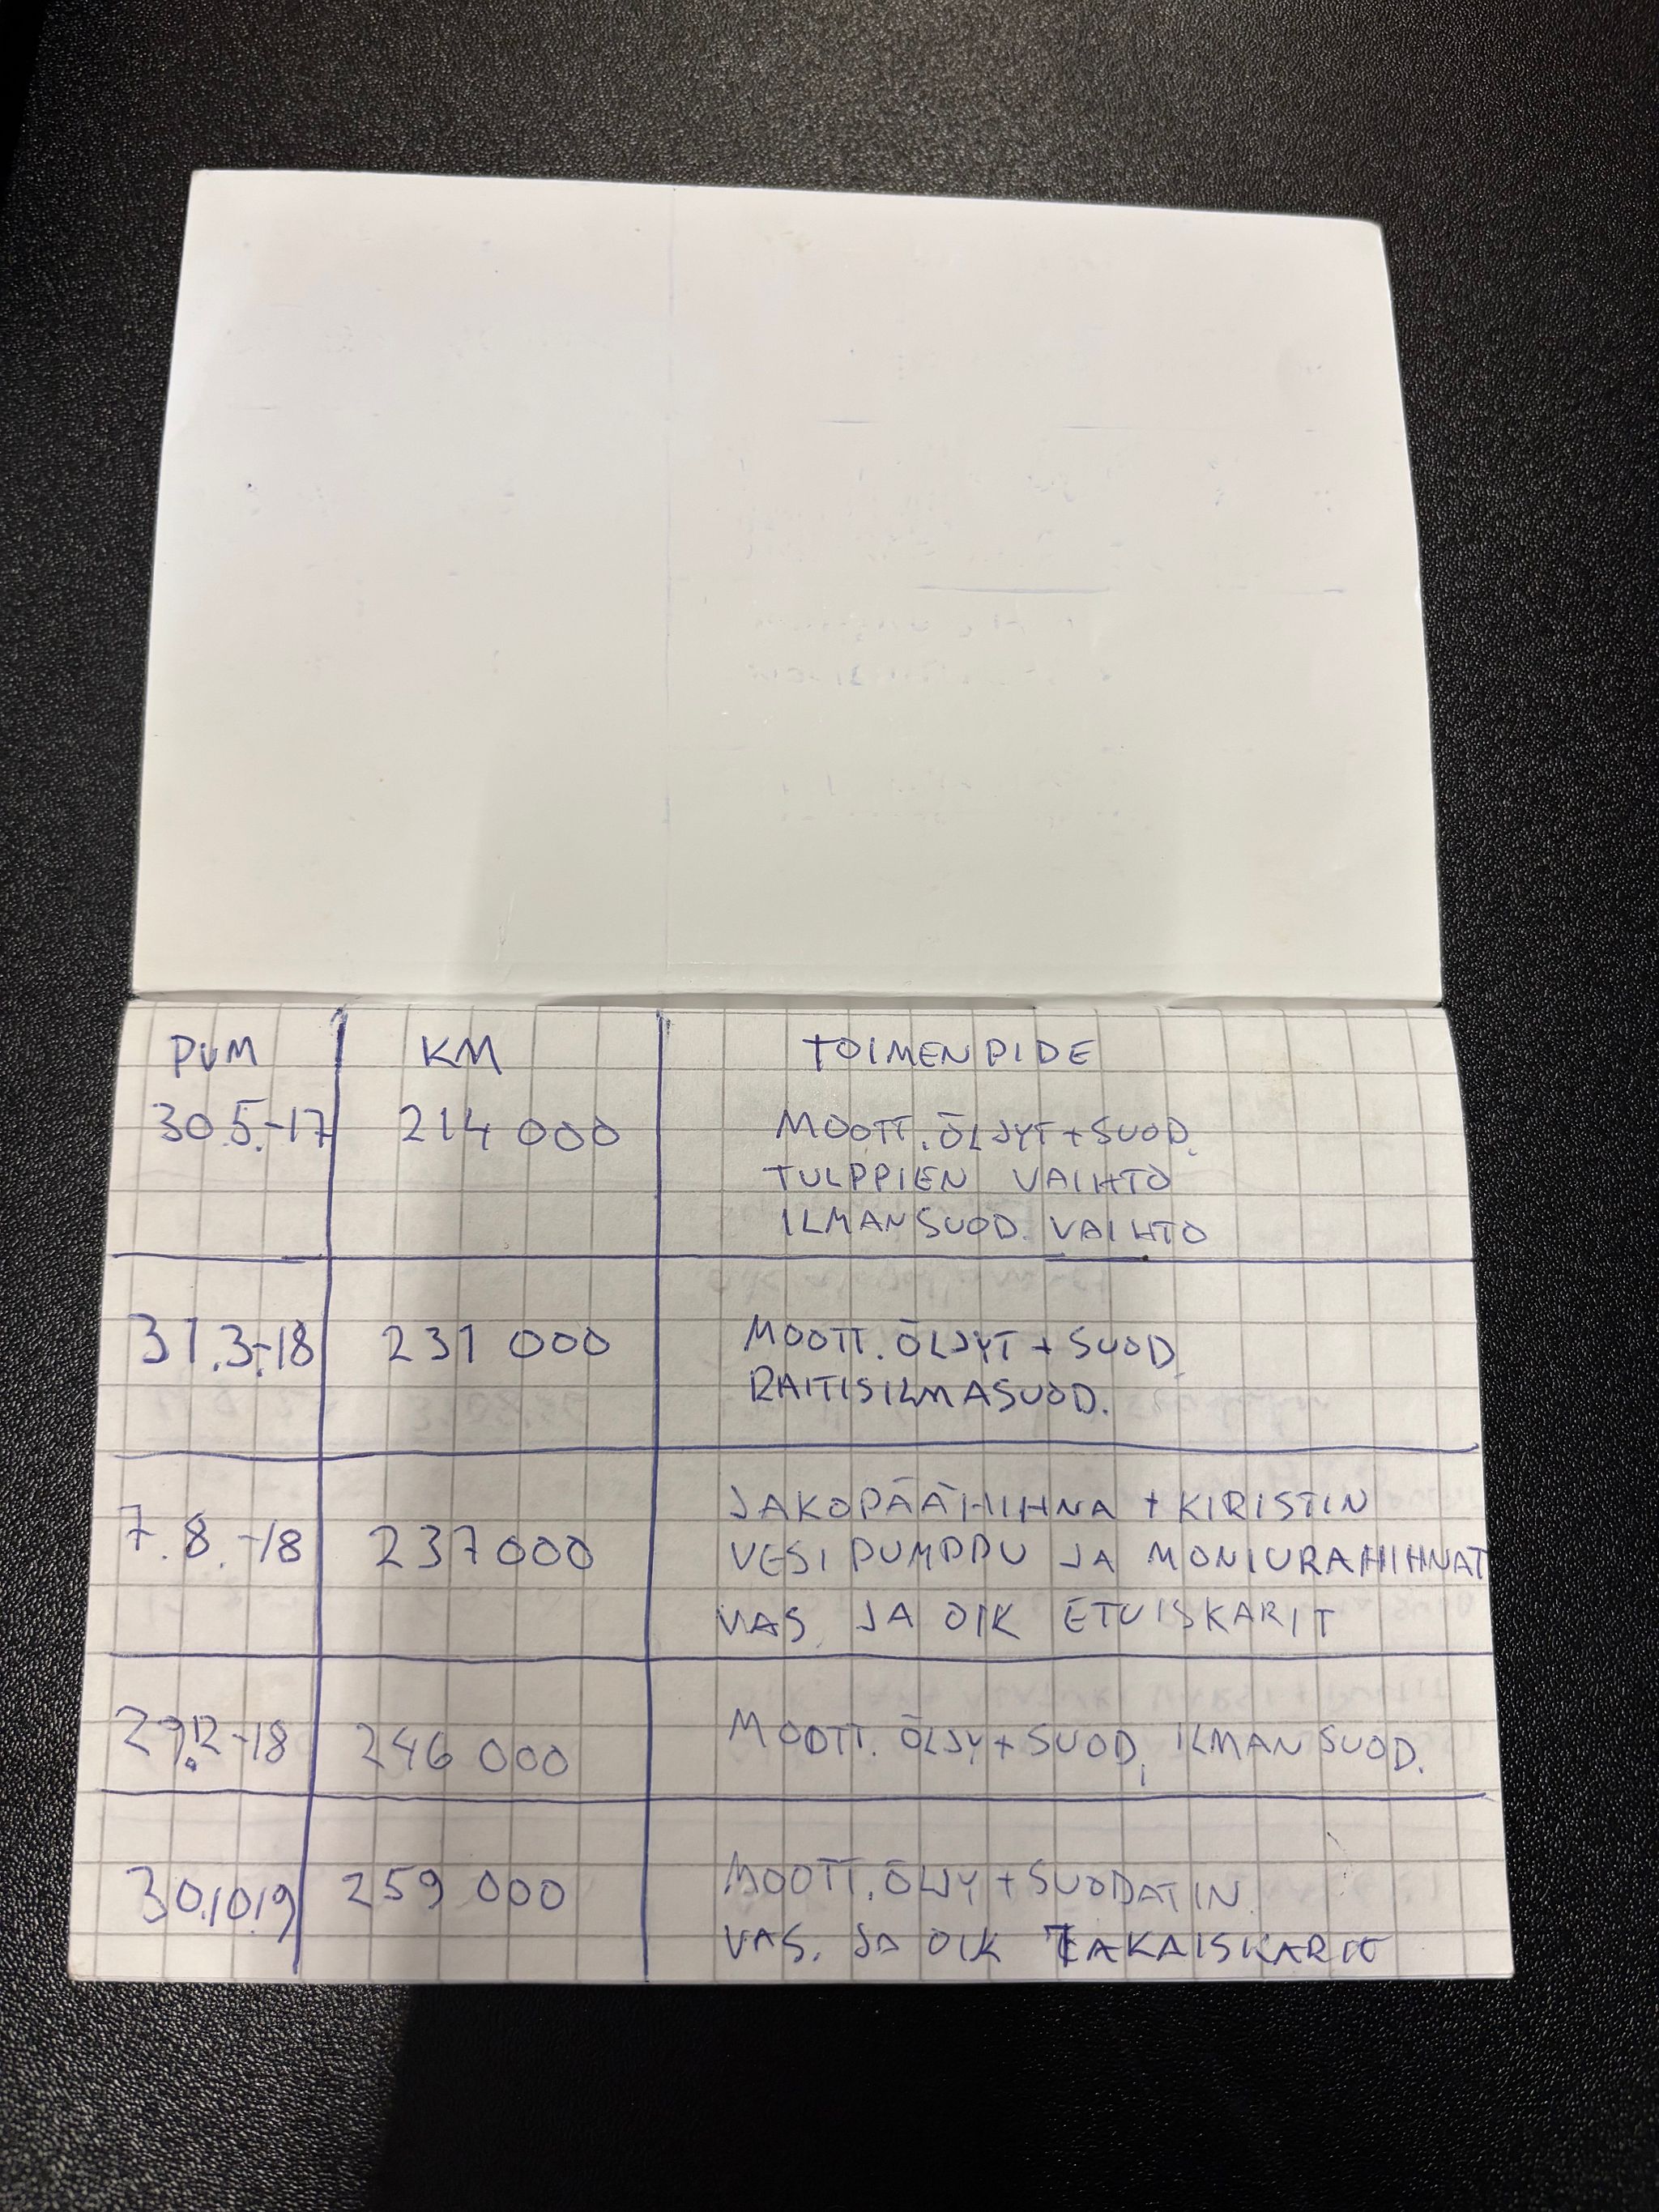 PVM KM TOIMENPIDE
30.5.-17 214 000 MOOTT. ÖLJYT + SUOD.
TULPPIEN VAIHTO
ILMANSUOD. VAIHTO
31.3.-18 231 000 MOOTT. ÖLJYT + SUOD.
RAITISILMASUOD.
7.8.-18 237 000 JAKOPÄÄHIHNA + KIRISTIN
VESIPUMPPU JA MONIURAHIHNAT
VAS. JA OIK ETUISKARIT
29.12-18 246 000 MOOTT. ÖLJY + SUOD, ILMANSUOD.
30.10.19 259 000 MOOTT. ÖLJY + SUODATIN.
VAS. JA OIK TAKAISKARIT